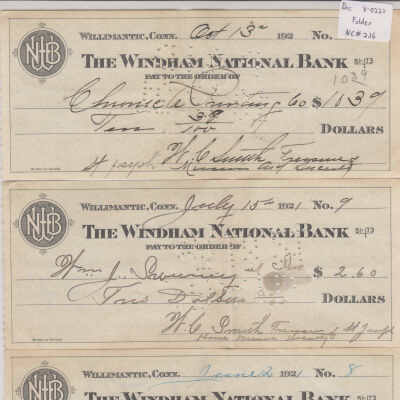 Doc V-0222
Folder
NC# 216
WILLIMANTIC, CONN. Oct 13 192 No.
NLB
THE WINDHAM NATIONAL BANK 51-173
PAY TO THE ORDER OF
1039
Printing Co $ 10 39
Ten 39/100 DOLLARS
W. C. Smith Treasurer
St Joseph
WILLIMANTIC, CONN. July 15 1921 No. 9
NLB
THE WINDHAM NATIONAL BANK 51-173
PAY TO THE ORDER OF
Wm J. $ 2.60
Two Dollars DOLLARS
W. C. Smith Treasurer St Joseph
WILLIMANTIC, CONN. June 2 1921 No. 8
NLB
THE WINDHAM NATIONAL BANK 51-173